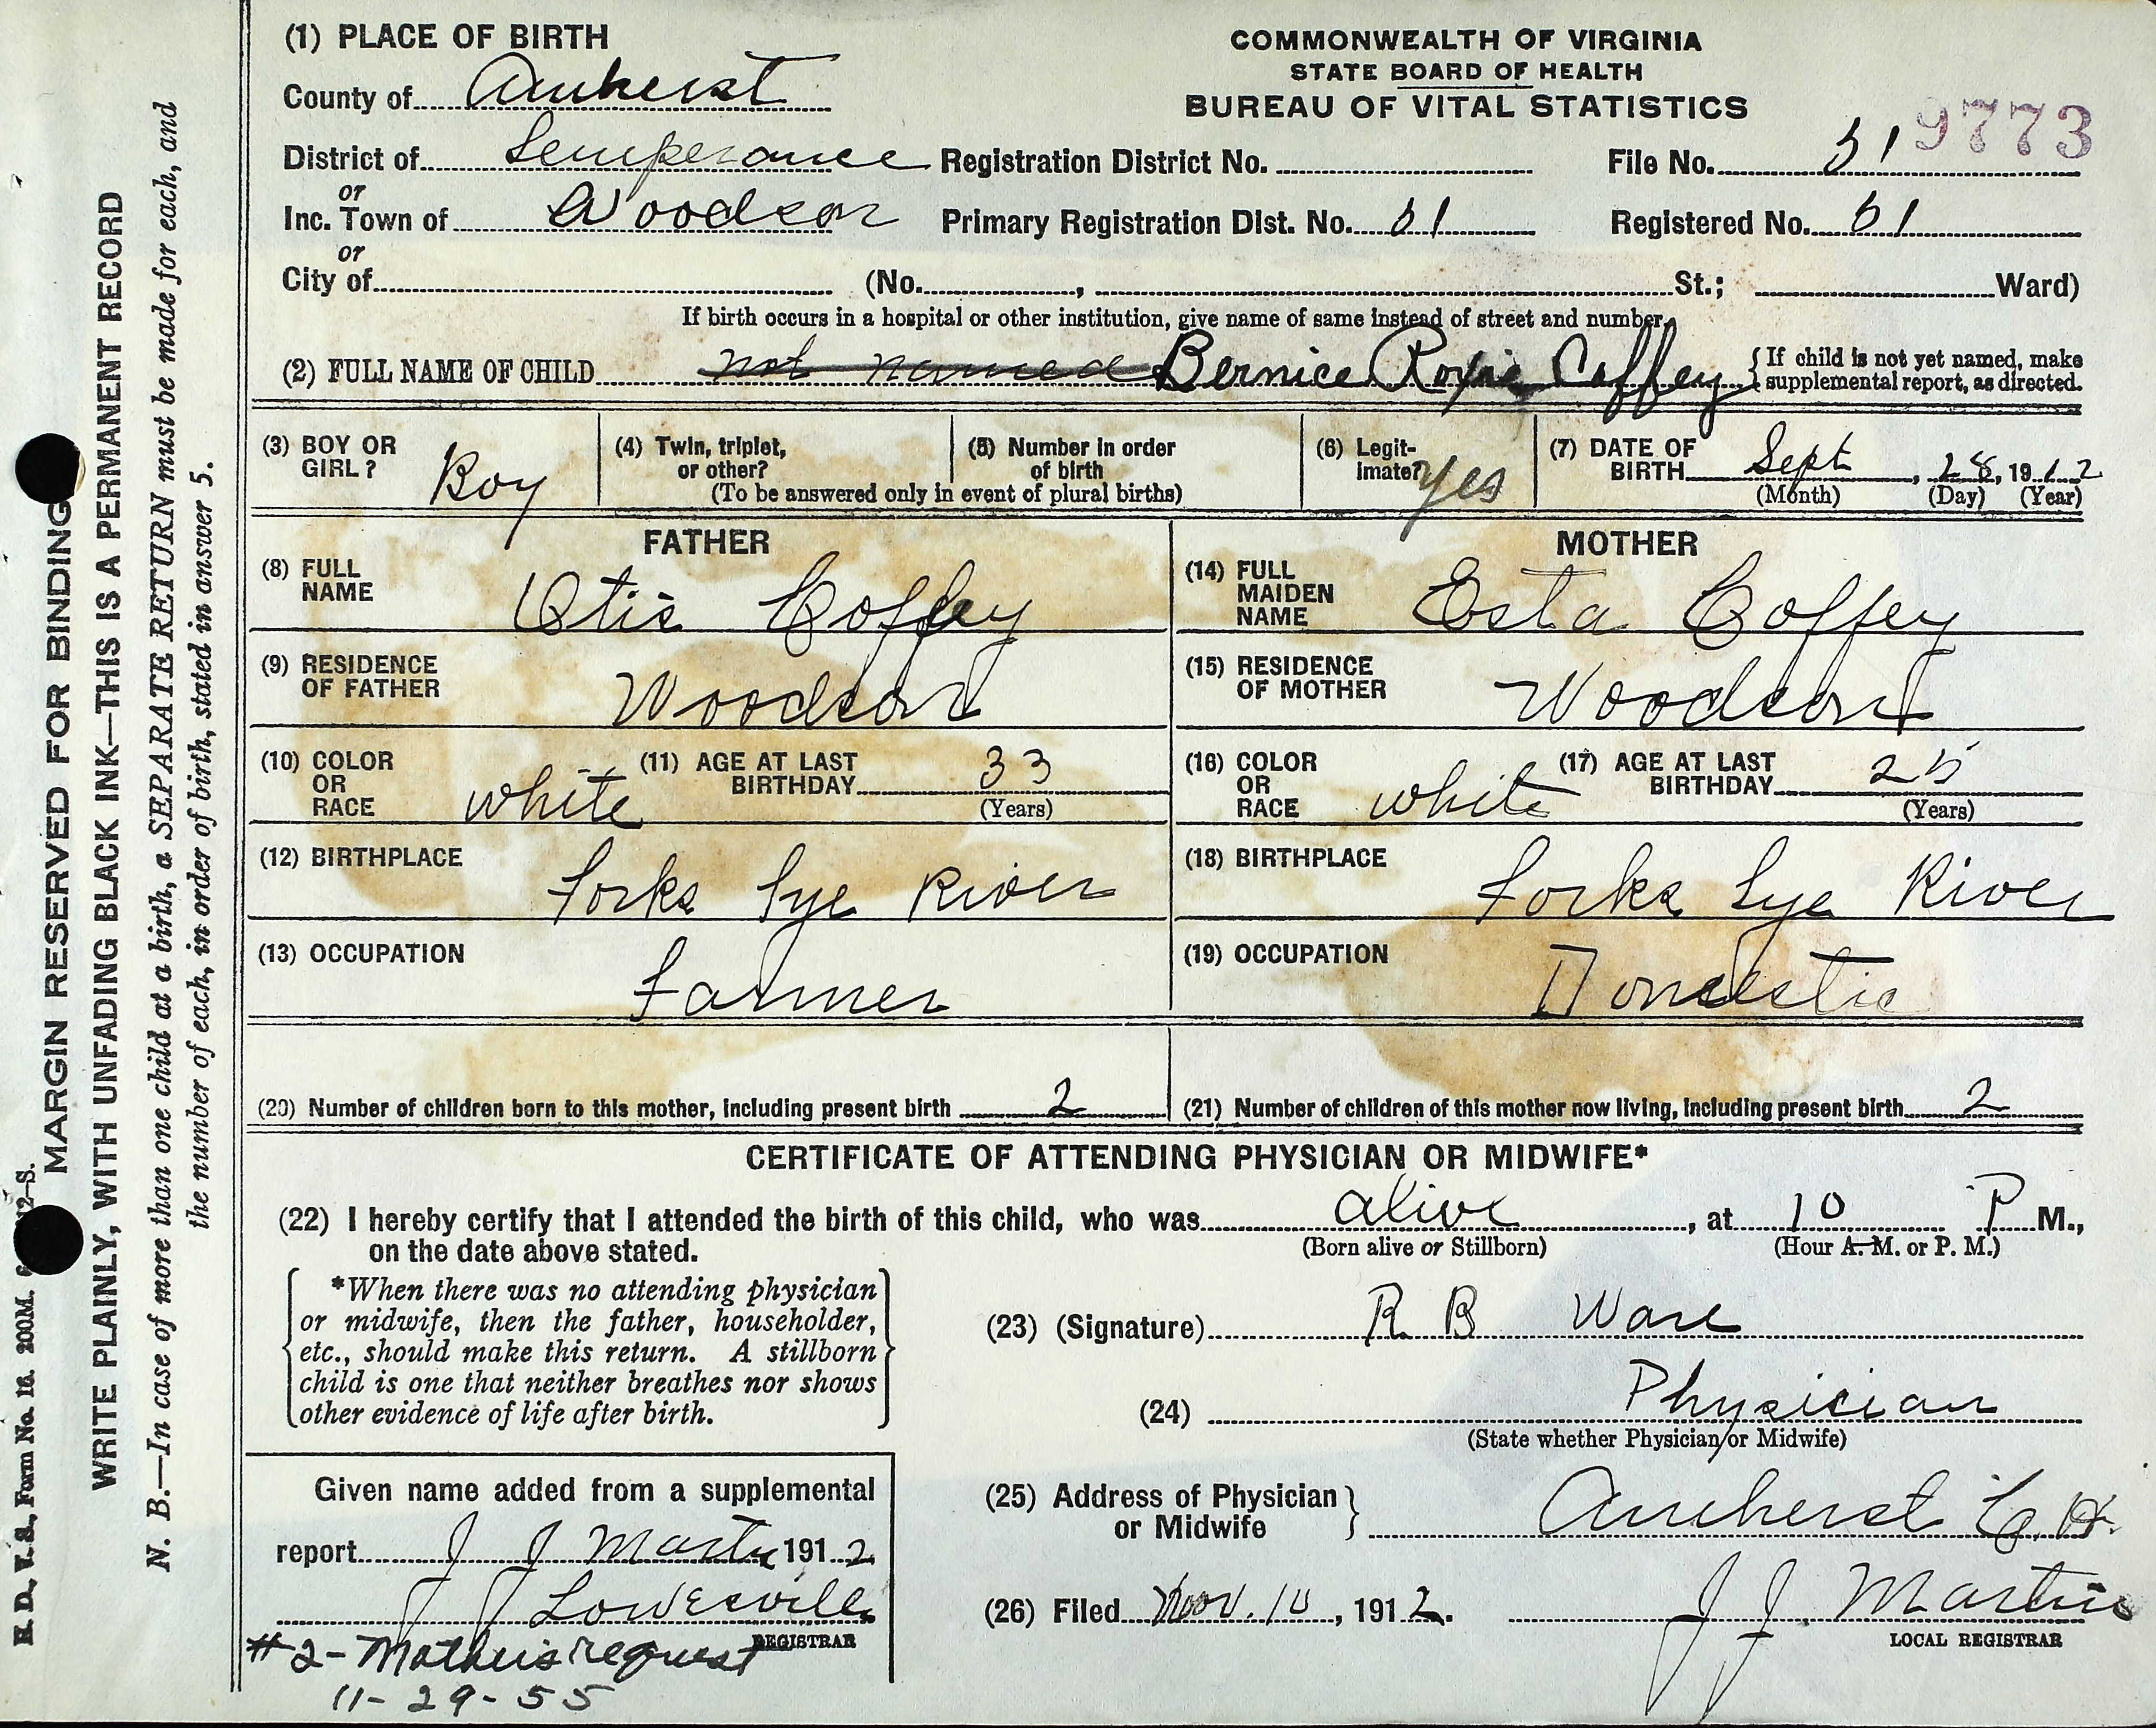 (1) PLACE OF BIRTH
County of Amherst
District of Temperance
or
Inc. Town of Woodson
or
City of (No. , St.; Ward)
COMMONWEALTH OF VIRGINIA
STATE BOARD OF HEALTH
BUREAU OF VITAL STATISTICS
9773
Registration District No. File No. 51
Primary Registration Dist. No. 51 Registered No. 51
If birth occurs in a hospital or other institution, give name of same instead of street and number.
(2) FULL NAME OF CHILD not named Bernice Royie Coffey {If child is not yet named, make
supplemental report, as directed.
(3) BOY OR
GIRL? Boy
(4) Twin, triplet,
or other?
(5) Number in order
of birth
(To be answered only in event of plural births)
(6) Legit-
imate? Yes
(7) DATE OF
BIRTH Sept, 28, 1912
(Month) (Day) (Year)
FATHER
(8) FULL
NAME Otis Coffey
(9) RESIDENCE
OF FATHER Woodson
(10) COLOR
OR
RACE white
(11) AGE AT LAST
BIRTHDAY 33
(Years)
(12) BIRTHPLACE Forks Tye River
(13) OCCUPATION Farmer
MOTHER
(14) FULL
MAIDEN
NAME Esta Coffey
(15) RESIDENCE
OF MOTHER Woodson
(16) COLOR
OR
RACE white
(17) AGE AT LAST
BIRTHDAY 25
(Years)
(18) BIRTHPLACE Forks Tye River
(19) OCCUPATION Domestic
(20) Number of children born to this mother, including present birth 2
(21) Number of children of this mother now living, including present birth 2
CERTIFICATE OF ATTENDING PHYSICIAN OR MIDWIFE*
(22) I hereby certify that I attended the birth of this child, who was alive, at 10 P M.,
on the date above stated. (Born alive or Stillborn) (Hour A. M. or P. M.)
*When there was no attending physician
or midwife, then the father, householder,
etc., should make this return. A stillborn
child is one that neither breathes nor shows
other evidence of life after birth.
(23) (Signature) R B Ware
(24) Physician
(State whether Physician or Midwife)
(25) Address of Physician
or Midwife } Amherst C.H.
(26) Filed Nov. 10, 1912. J J. Martin
LOCAL REGISTRAR
Given name added from a supplemental
report J J Martin 1912
Lowesville
REGISTRAR
#2-Mother's request
11-29-55
MARGIN RESERVED FOR BINDING
WRITE PLAINLY, WITH UNFADING BLACK INK—THIS IS A PERMANENT RECORD
N. B.—In case of more than one child at a birth, a SEPARATE RETURN must be made for each, and
the number of each, in order of birth, stated in answer 5.
V. S., Form No. 16. 200M.